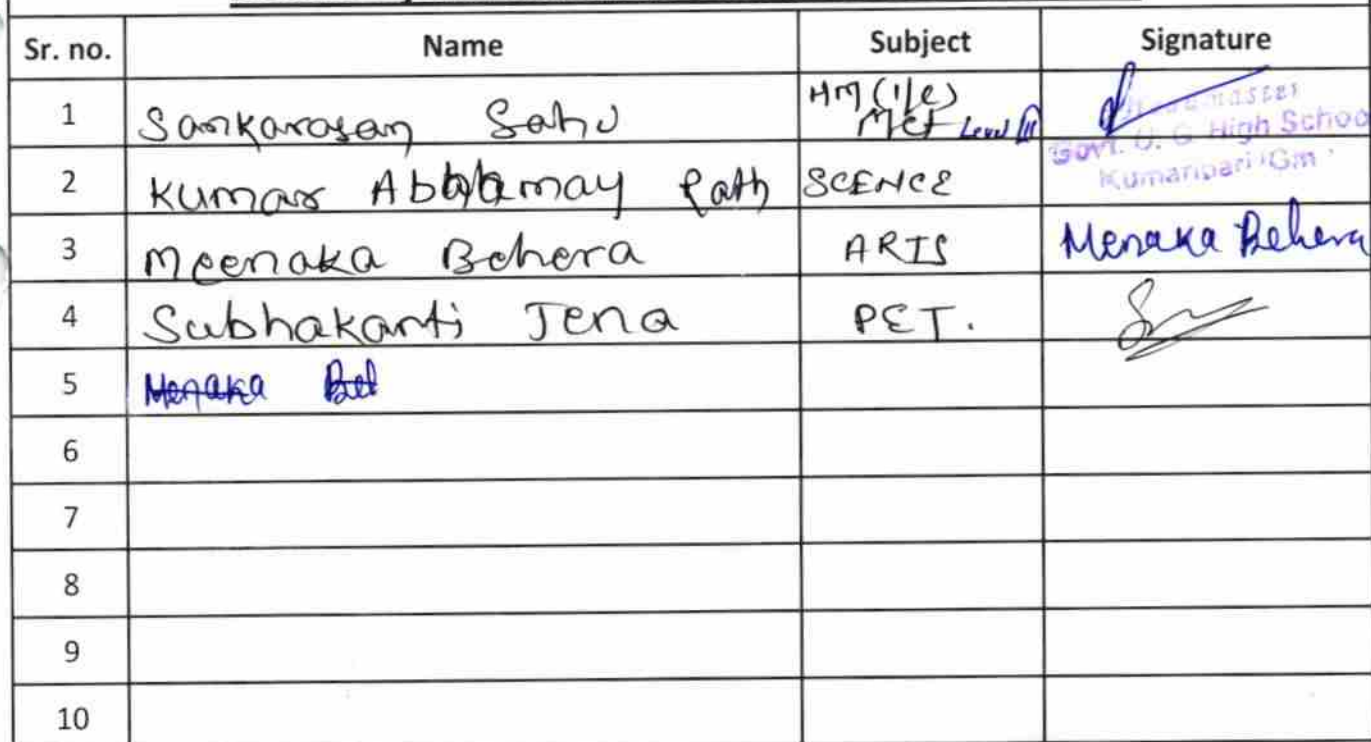 Sr. no. Name Subject Signature
1 Sankarasan Sahu HM (I/C)
Level
Headmaster
Govt. U. G. High School
2 Kumar Path SCENCE
3 Meenaka Behera ARTS Menaka Behera
4 Subhakanti Jena PET.
5 Menaka Beh
6
7
8
9
10